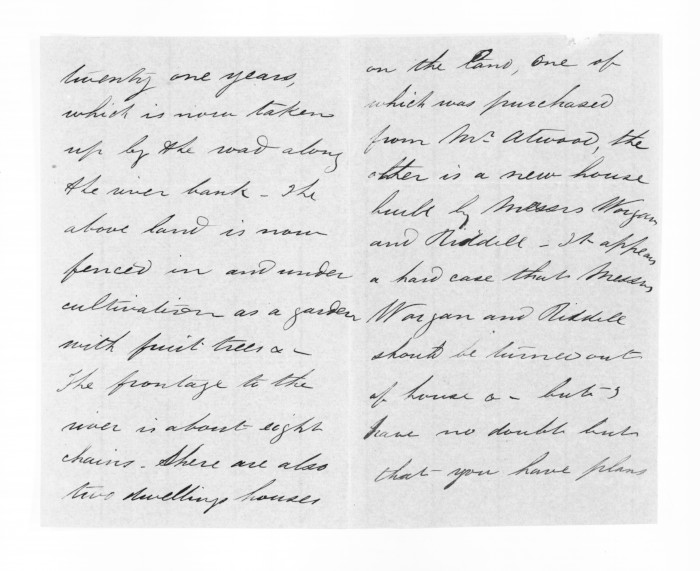 twenty one years,
which is now taken
up by the road along
the river bank - The
above land is now
fenced in and under
cultivation as a garden
with fruit trees & -
The frontage to the
river is about eight
chains. There are also
two dwellings houses
on the land, one of
which was purchased
from Mr. Atwood, the
other is a new house
built by Messrs Worgan
and Riddell - It appears
a hard case that Messrs
Worgan and Riddell
should be turned out
of house & - but I
have no doubt but
that you have plans